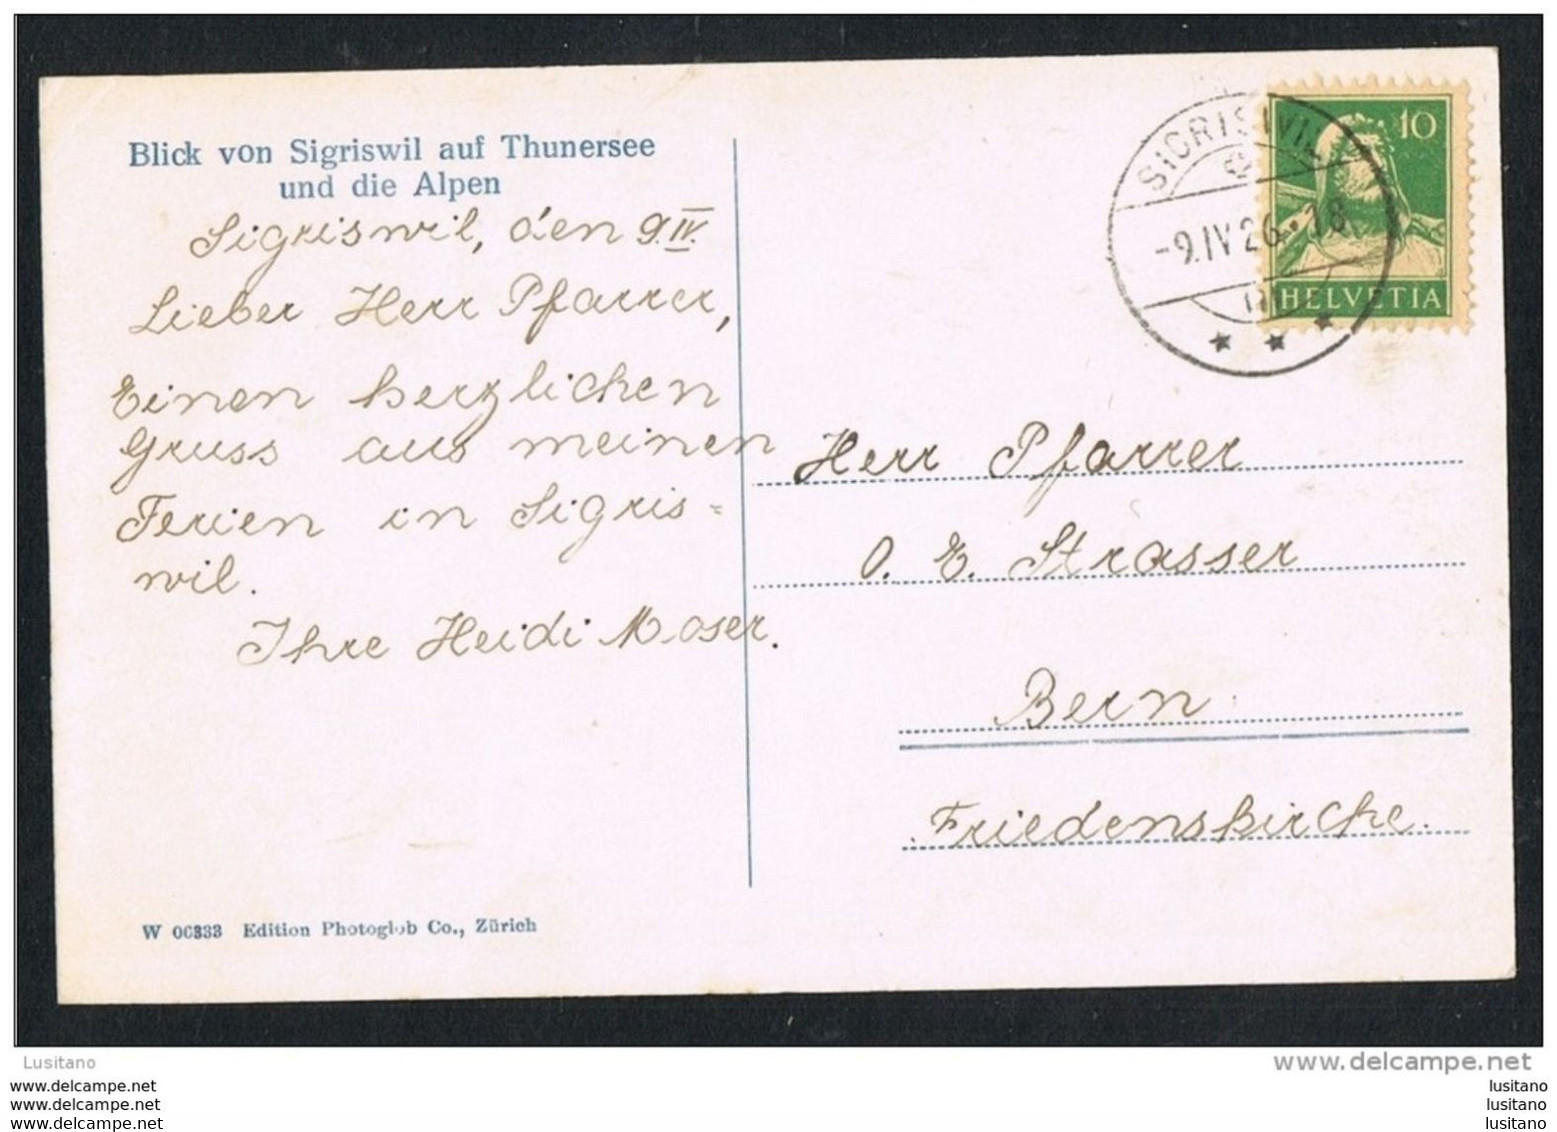 Blick von Sigriswil auf Thunersee
und die Alpen
Sigriswil, den 9.IV.
Lieber Herr Pfarrer,
Einen herzlichen
Gruss aus meinen
Ferien in Sigris=
wil.
Ihre Heidi Moser.
W 00333 Edition Photoglob Co., Zürich
SIGRISWIL
-9.IV.26.-18
10
HELVETIA
Herr Pfarrer
O. E. Strasser
Bern
Friedenskirche.
Lusitano
www.delcampe.net
www.delcampe.net
www.delcampe.net
www.delcampe.net
lusitano
lusitano
lusitano